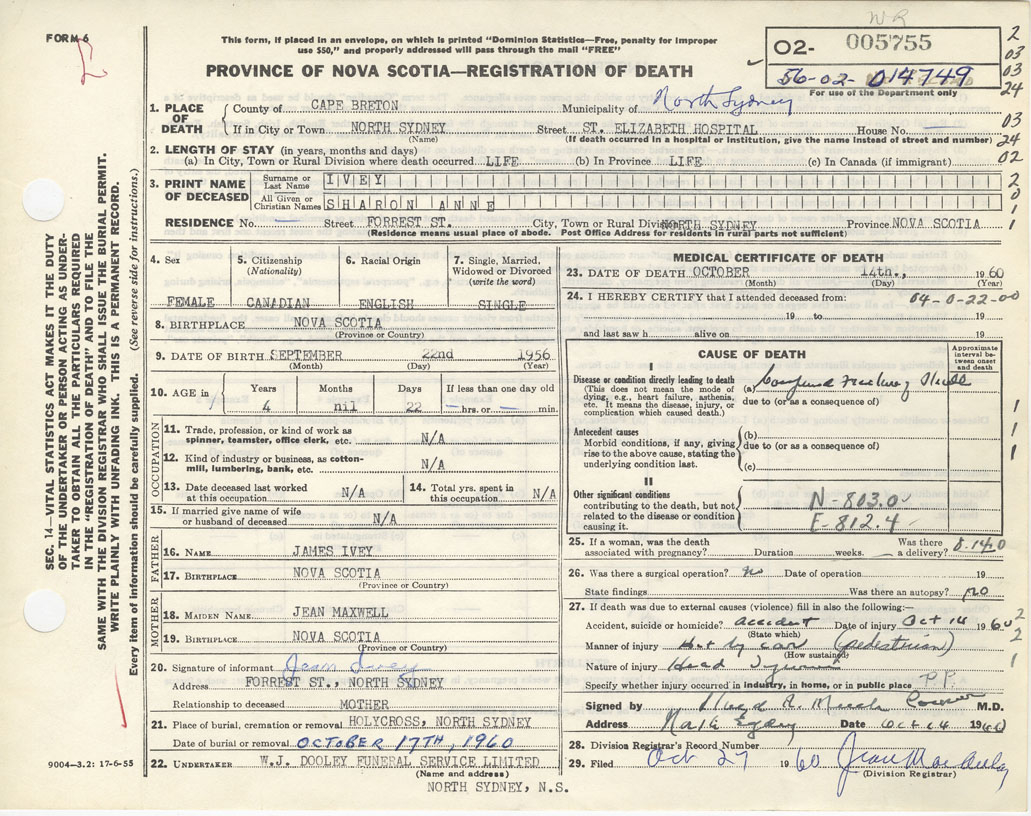 WR
FORM 6
This form, if placed in an envelope, on which is printed "Dominion Statistics—Free, penalty for improper
use $50," and properly addressed will pass through the mail "FREE"
02- 005755
56-02- 014749
For use of the Department only
PROVINCE OF NOVA SCOTIA—REGISTRATION OF DEATH
2
03
03
24
03
24
02
2
0
1
SEC. 14—VITAL STATISTICS ACT MAKES IT THE DUTY
OF THE UNDERTAKER OR PERSON ACTING AS UNDER-
TAKER TO OBTAIN ALL THE PARTICULARS REQUIRED
IN THE "REGISTRATION OF DEATH" AND TO FILE THE
SAME WITH THE DIVISION REGISTRAR WHO SHALL ISSUE THE BURIAL PERMIT.
WRITE PLAINLY WITH UNFADING INK. THIS IS A PERMANENT RECORD.
Every item of information should be carefully supplied. (See reverse side for instructions.)
1. PLACE OF DEATH
County of CAPE BRETON Municipality of North Sydney
If in City or Town NORTH SYDNEY Street ST. ELIZABETH HOSPITAL House No. —
(Name) (If death occurred in a hospital or institution, give the name instead of street and number)
2. LENGTH OF STAY (in years, months and days)
(a) In City, Town or Rural Division where death occurred LIFE (b) In Province LIFE (c) In Canada (if immigrant)
3. PRINT NAME OF DECEASED
Surname or Last Name IVEY
All Given or Christian Names SHARON ANNE
RESIDENCE No. — Street FORREST ST. City, Town or Rural Division NORTH SYDNEY Province NOVA SCOTIA
(Residence means usual place of abode. Post Office Address for residents in rural parts not sufficient)
4. Sex FEMALE
5. Citizenship (Nationality) CANADIAN
6. Racial Origin ENGLISH
7. Single, Married, Widowed or Divorced (write the word) SINGLE
8. BIRTHPLACE NOVA SCOTIA
(Province or Country)
9. DATE OF BIRTH SEPTEMBER 22nd 1956
(Month) (Day) (Year)
10. AGE in Years 4 Months nil Days 22 If less than one day old — hrs. or — min.
OCCUPATION
11. Trade, profession, or kind of work as spinner, teamster, office clerk, etc. N/A
12. Kind of industry or business, as cotton-mill, lumbering, bank, etc. N/A
13. Date deceased last worked at this occupation N/A
14. Total yrs. spent in this occupation N/A
15. If married give name of wife or husband of deceased N/A
FATHER
16. NAME JAMES IVEY
17. BIRTHPLACE NOVA SCOTIA
(Province or Country)
MOTHER
18. MAIDEN NAME JEAN MAXWELL
19. BIRTHPLACE NOVA SCOTIA
(Province or Country)
20. Signature of informant Jean Ivey
Address FORREST ST., NORTH SYDNEY
Relationship to deceased MOTHER
21. Place of burial, cremation or removal HOLYCROSS, NORTH SYDNEY
Date of burial or removal OCTOBER 17TH, 1960
22. UNDERTAKER W.J. DOOLEY FUNERAL SERVICE LIMITED
(Name and address)
NORTH SYDNEY, N.S.
9004—3.2: 17-6-55
MEDICAL CERTIFICATE OF DEATH
23. DATE OF DEATH OCTOBER 14th., 1960
(Month) (Day) (Year)
24. I HEREBY CERTIFY that I attended deceased from: 04-0-22-00
19 to 19
and last saw h alive on 19
CAUSE OF DEATH
Approximate interval between onset and death
I
Disease or condition directly leading to death (a) Compound Fracture of Skull
(This does not mean the mode of dying, e.g., heart failure, asthenia, etc. It means the disease, injury, or complication which caused death.)
due to (or as a consequence of)
Antecedent causes
Morbid conditions, if any, giving rise to the above cause, stating the underlying condition last.
(b)
due to (or as a consequence of)
(c)
1
1
1
II
Other significant conditions contributing to the death, but not related to the disease or condition causing it.
N-803.0
E-812.4
25. If a woman, was the death associated with pregnancy? Duration weeks. Was there a delivery? 8.140
26. Was there a surgical operation? No Date of operation 19
State findings Was there an autopsy? no
27. If death was due to external causes (violence) fill in also the following:—
Accident, suicide or homicide? accident Date of injury Oct 14 1960
(State which)
Manner of injury Hit by car (pedestrian)
(How sustained)
Nature of injury Head Injuries
Specify whether injury occurred in industry, in home, or in public place P.P.
2
2
1
Signed by M.D.
Address North Sydney Date Oct 14 1960
28. Division Registrar's Record Number
29. Filed Oct 27 1960 Jean MacAulay
(Division Registrar)